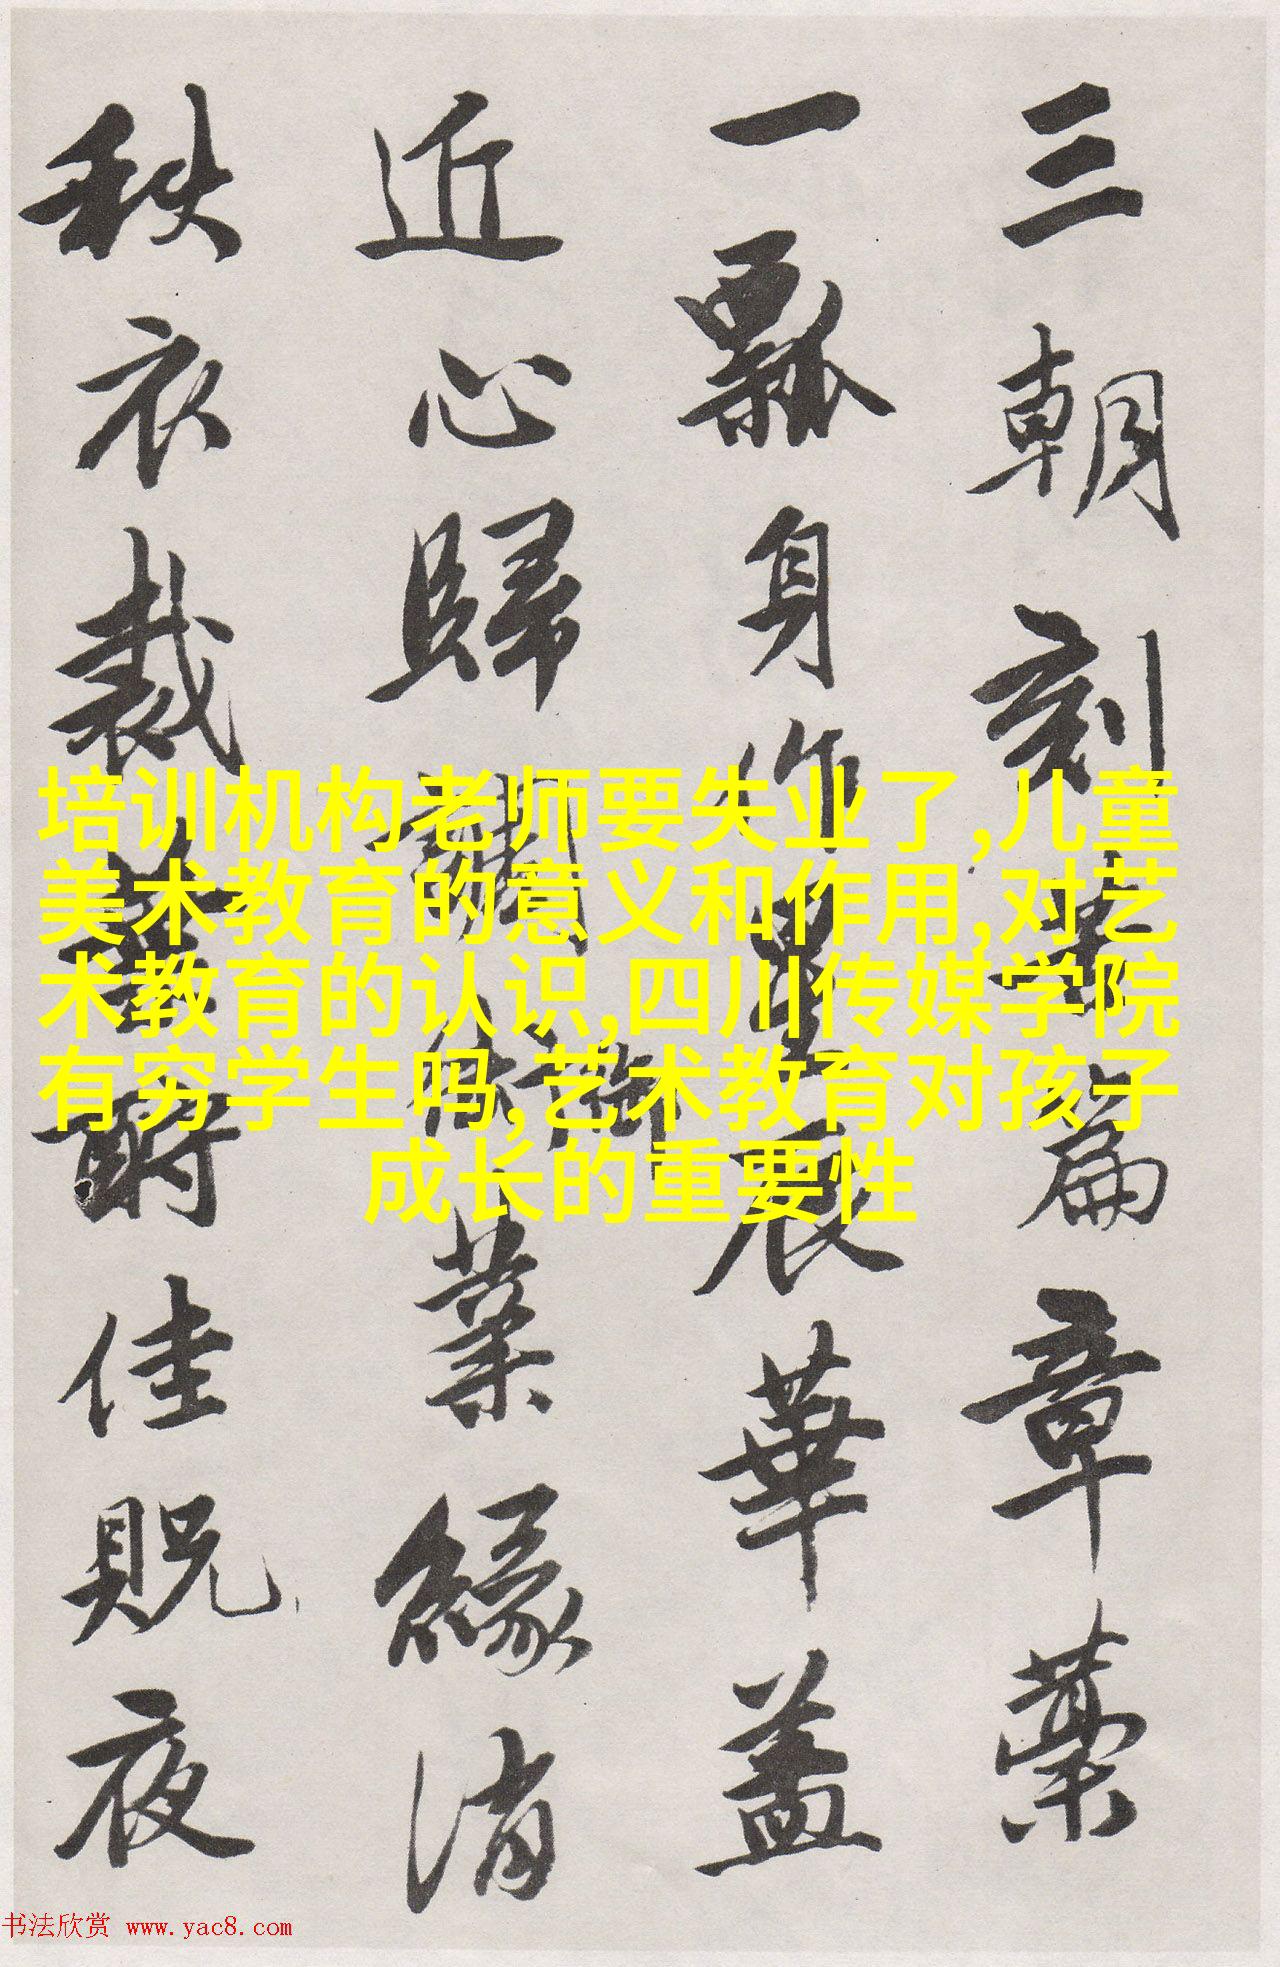 三朝刻篇章藁
一瓢身作星辰華蓋
近心歸休業緣消
秩衣裁酬佳貺夜
培训机构老师要失业了,儿童
美术教育的意义和作用,对艺
术教育的认识,四川传媒学院
有穷学生吗,艺术教育对孩子
成长的重要性
书法欣赏 www.yac8.com